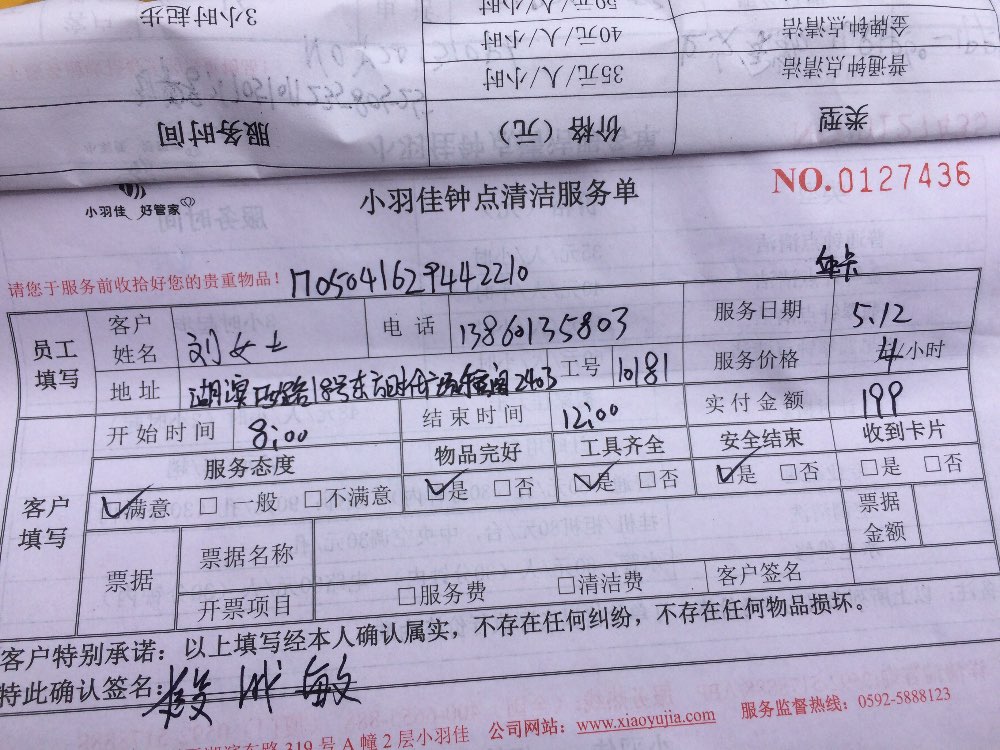 3小时起步
50元/人/小时
金牌钟点清洁
40元/人/小时
普通钟点清洁
35元/人/小时
类型
价格（元）
服务时间
小羽佳 好管家
小羽佳钟点清洁服务单
NO.0127436
请您于服务前收拾好您的贵重物品！
1705041629442210
年卡
员工填写
客户姓名
刘女士
电话
13860135803
服务日期
5.12
地址
18号东方时代广场 2403
工号
10181
服务价格
4/小时
开始时间
8:00
结束时间
12:00
实付金额
199
客户填写
服务态度
物品完好
工具齐全
安全结束
收到卡片
☑满意 □一般 □不满意
☑是 □否
☑是 □否
☑是 □否
□是 □否
票据
票据名称
票据金额
开票项目
□服务费 □清洁费
客户签名
客户特别承诺：以上填写经本人确认属实，不存在任何纠纷，不存在任何物品损坏。
特此确认签名：
东路319号A幢2层小羽佳 公司网站：www.xiaoyujia.com 服务监督热线：0592-5888123